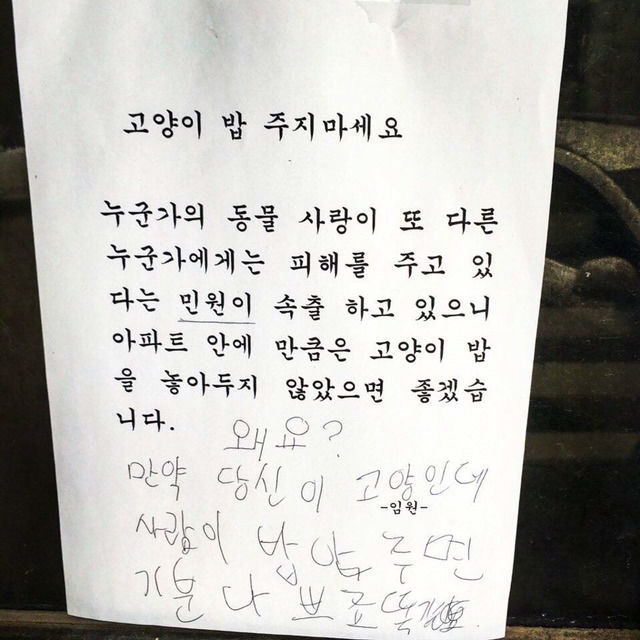 고양이 밥 주지마세요
누군가의 동물 사랑이 또 다른
누군가에게는 피해를 주고 있
다는 민원이 속출 하고 있으니
아파트 안에 만큼은 고양이 밥
을 놓아두지 않았으면 좋겠습
니다.
왜요?
만약 당신이 고양인데
-임원-
사람이 밥 않 주면
기분 나쁘죠 똑